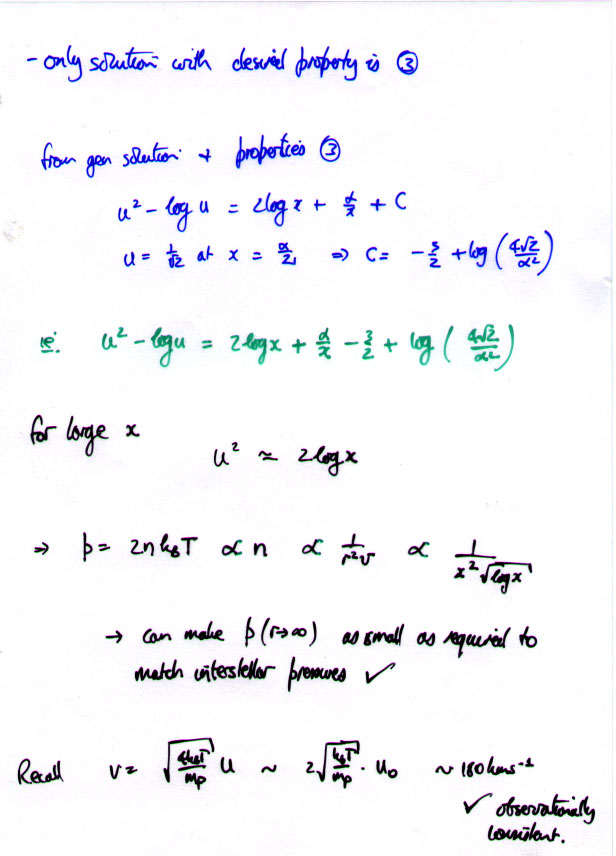 - only solution with desired property is ③
from gen solution + properties ③
u² - log u = 2log x + α/x + C
u = 1/√2 at x = α/2, ⇒ C = -3/2 + log (4√2/α²)
ie: u² - log u = 2log x + α/x - 3/2 + log (4√2/α²)
for large x
u² ≈ 2log x
⇒ p = 2nk_BT ∝ n ∝ 1/r²v ∝ 1/x²√log x
→ can make p(r→∞) as small as required to
match interstellar pressures ✓
Recall v = √(4k_BT/m_p) u ~ 2√(k_BT/m_p) · u₀ ~ 180 kms⁻¹
✓ observationally
consistent.